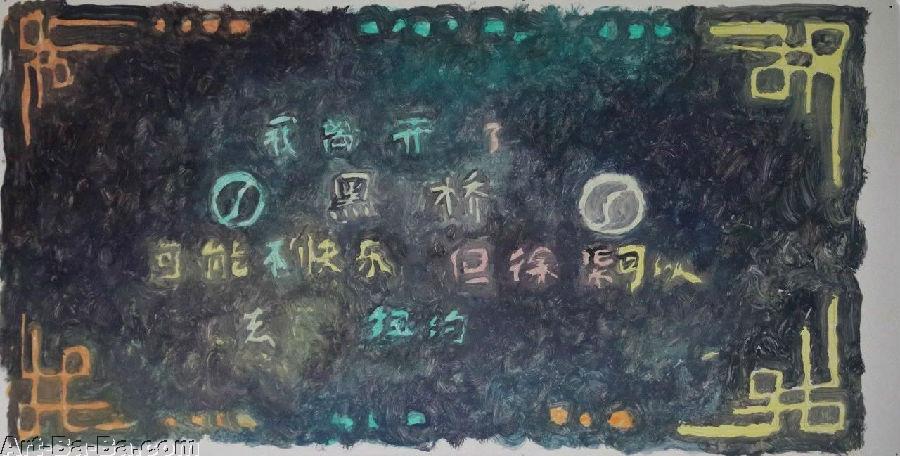 我离开了
黑桥
可能不快乐 但徐渠可以
去 纽约
Art-Ba-Ba.com